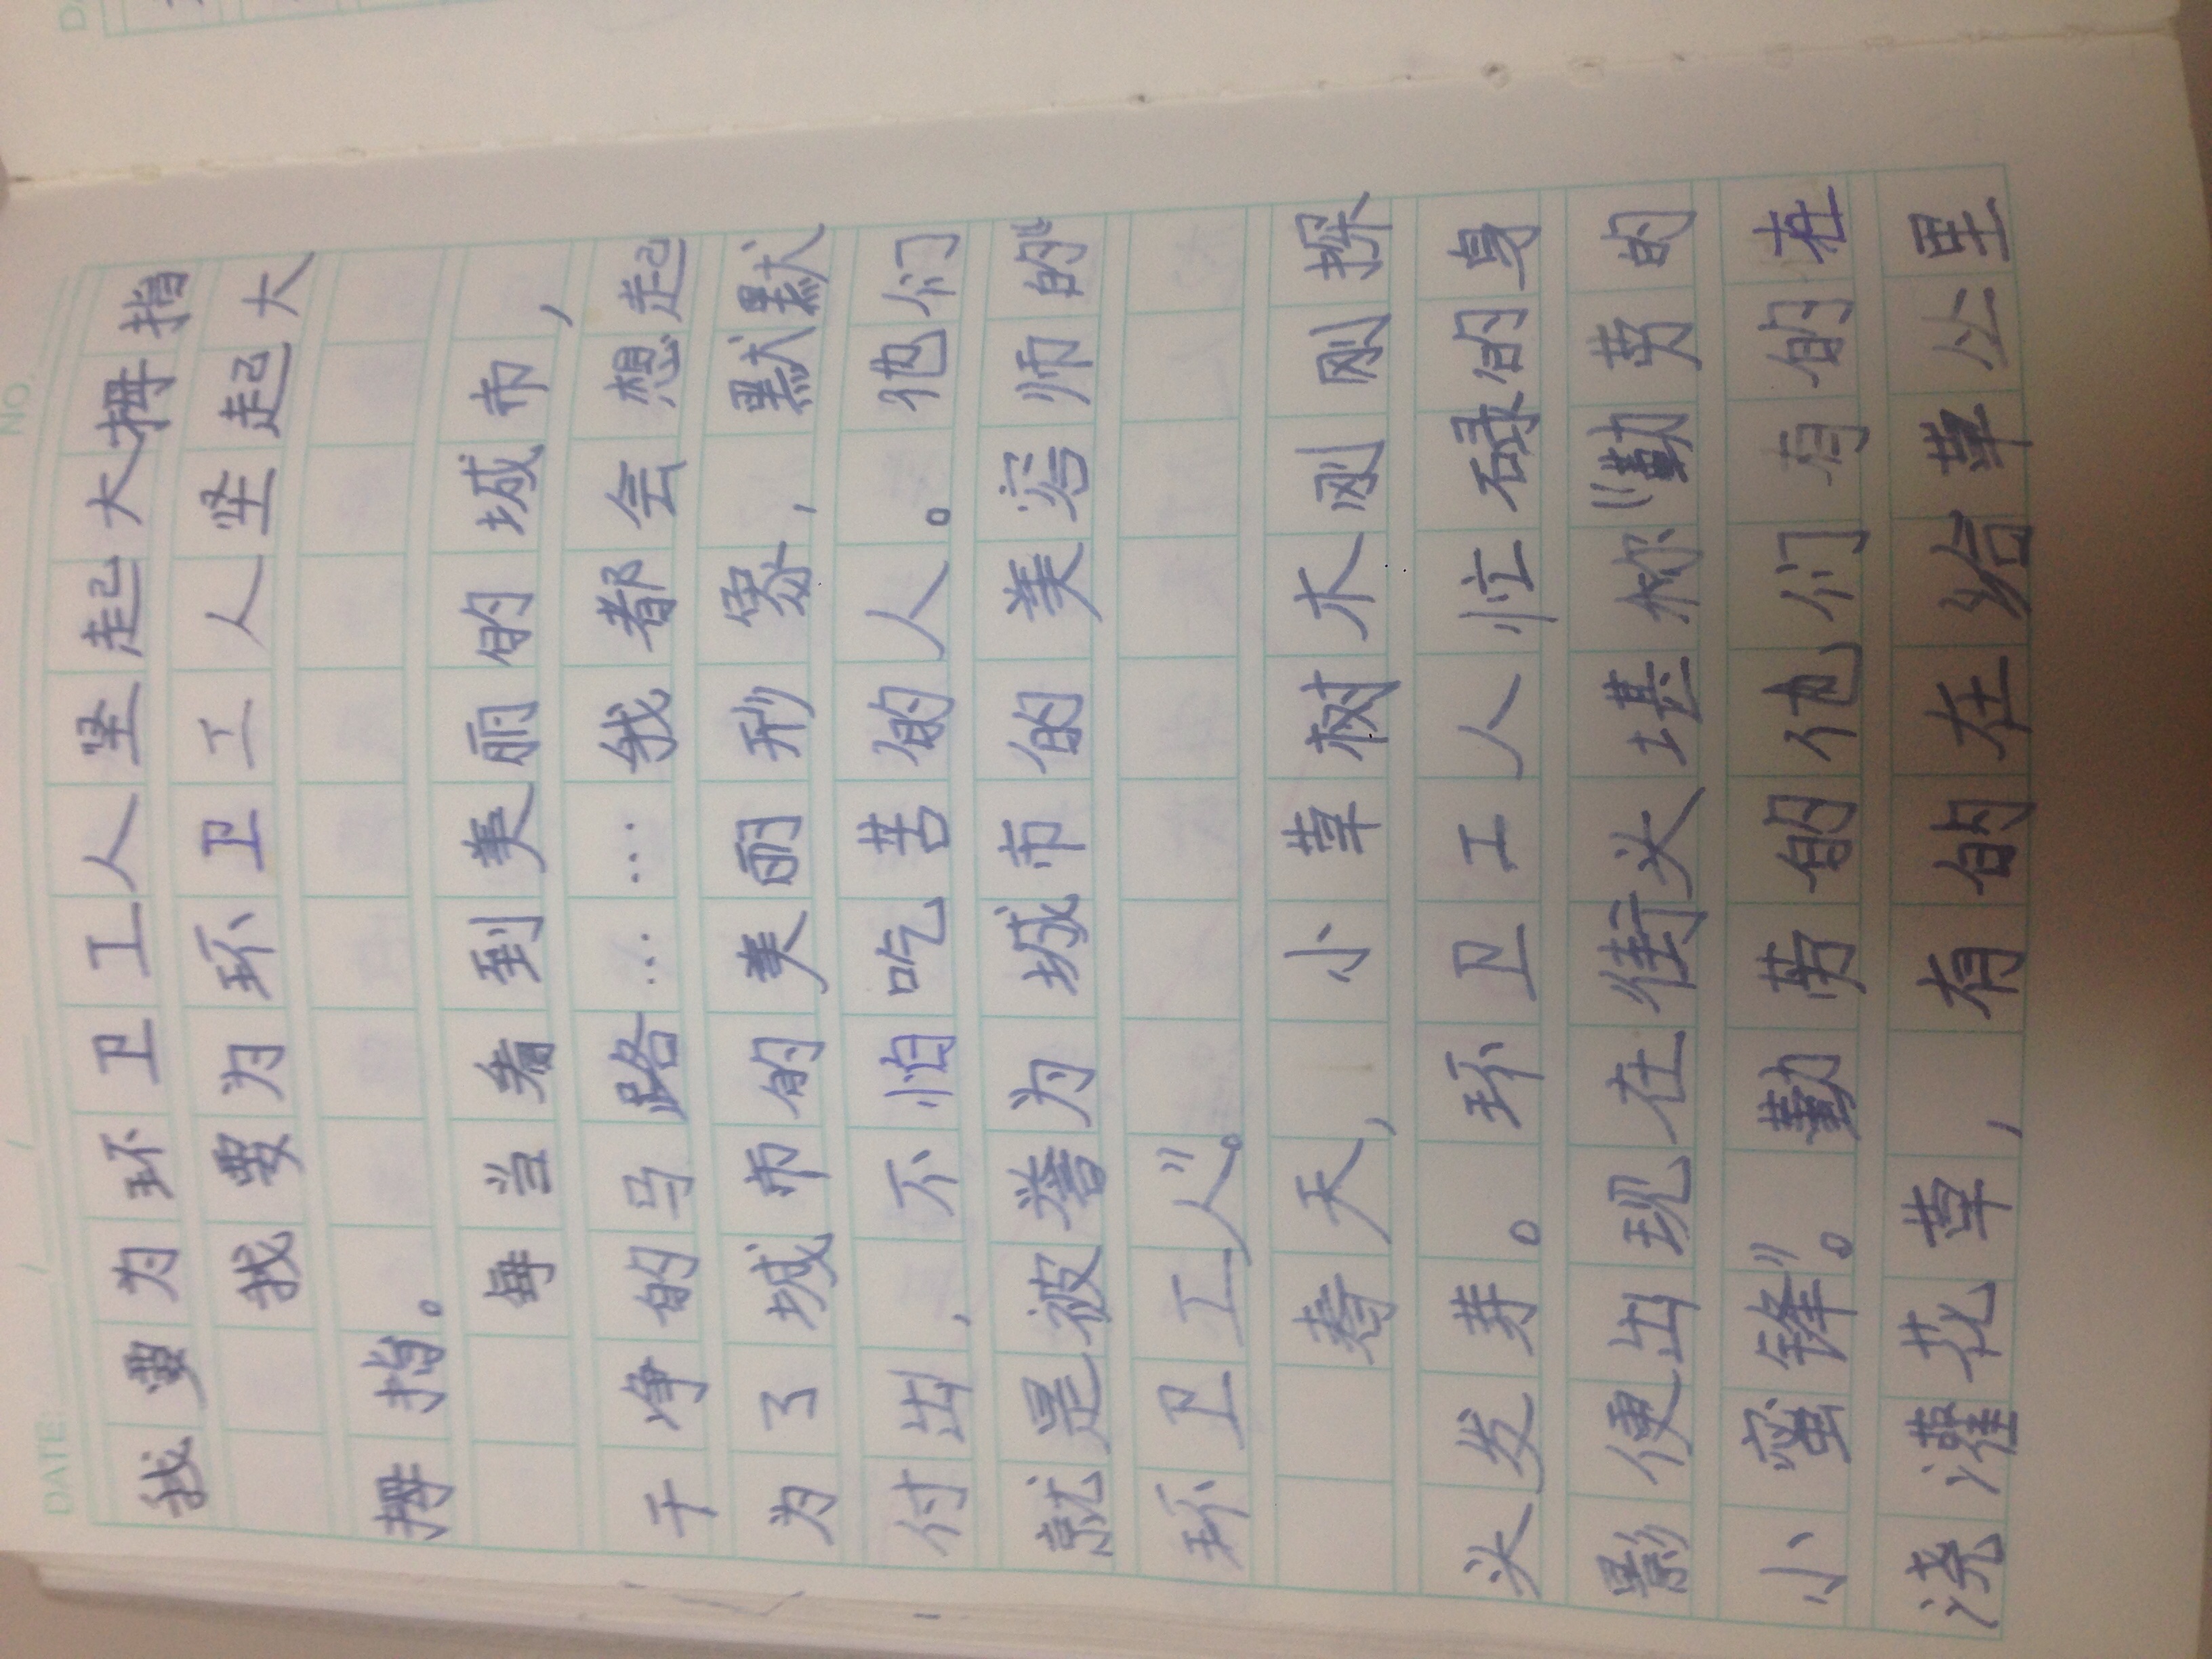 NO.
DATE
我要为环卫工人坚起大拇指
我要为环卫工人坚起大
拇指。
每当看到美丽的城市,
干净的马路……我都会想起
为了城市的美丽形象,默默
付出,不怕吃苦的人。他们
就是被誉为城市的美容师的“
环卫工人”。
春天,小草树木刚刚探
头发芽。环卫工人忙碌的身
影便出现在街头堪称“勤劳的
小蜜锋”。勤劳的他们有的在
浇灌花草,有的在给草公里